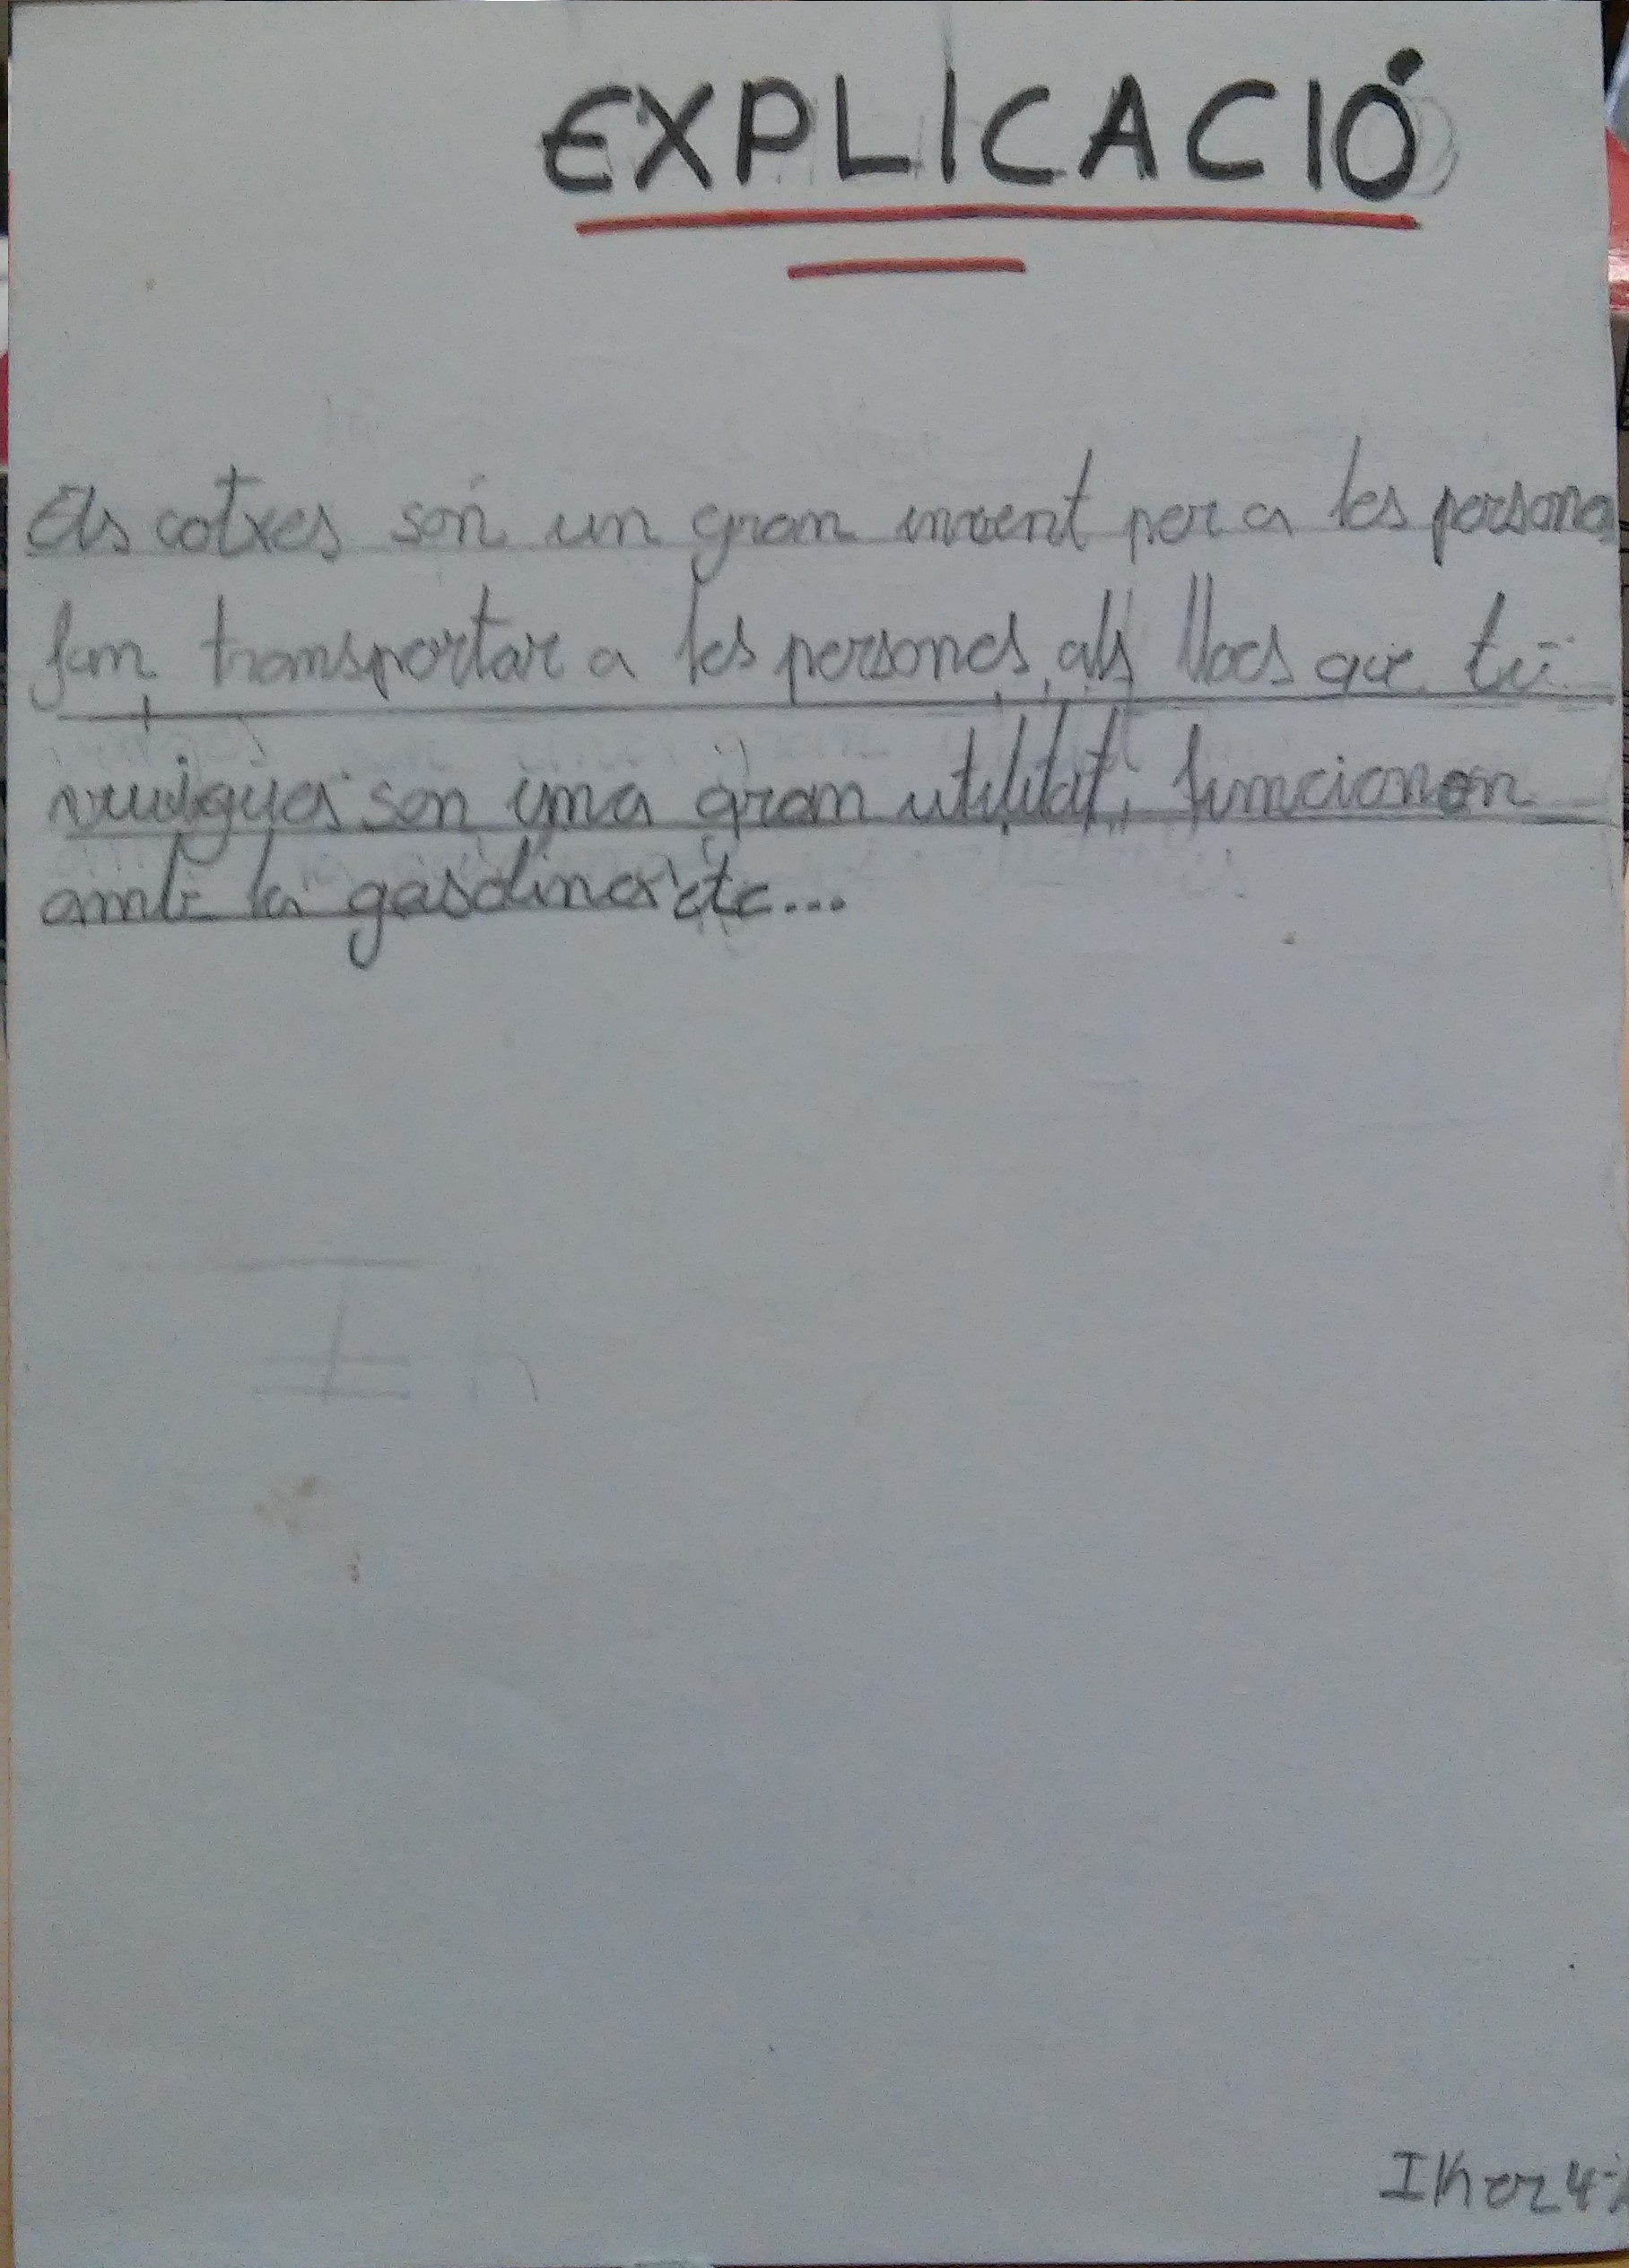 EXPLICACIÓ
Els cotxes són un gran invent per a les persones
fan transportar a les persones als llocs que tú
vuigues son una gran utilitat, funcionen
amb la gasolina etc...
Iker 4t